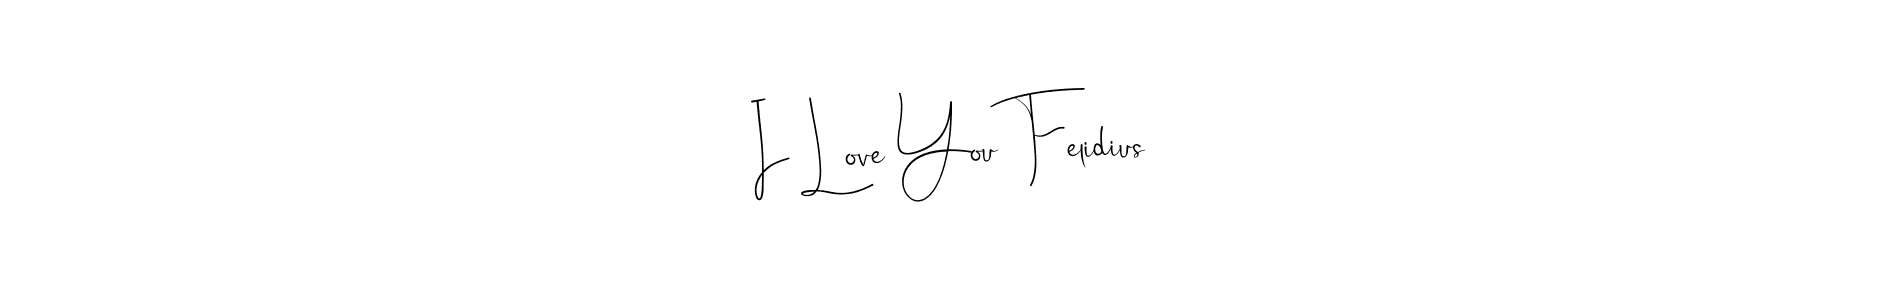 I Love You Felidius